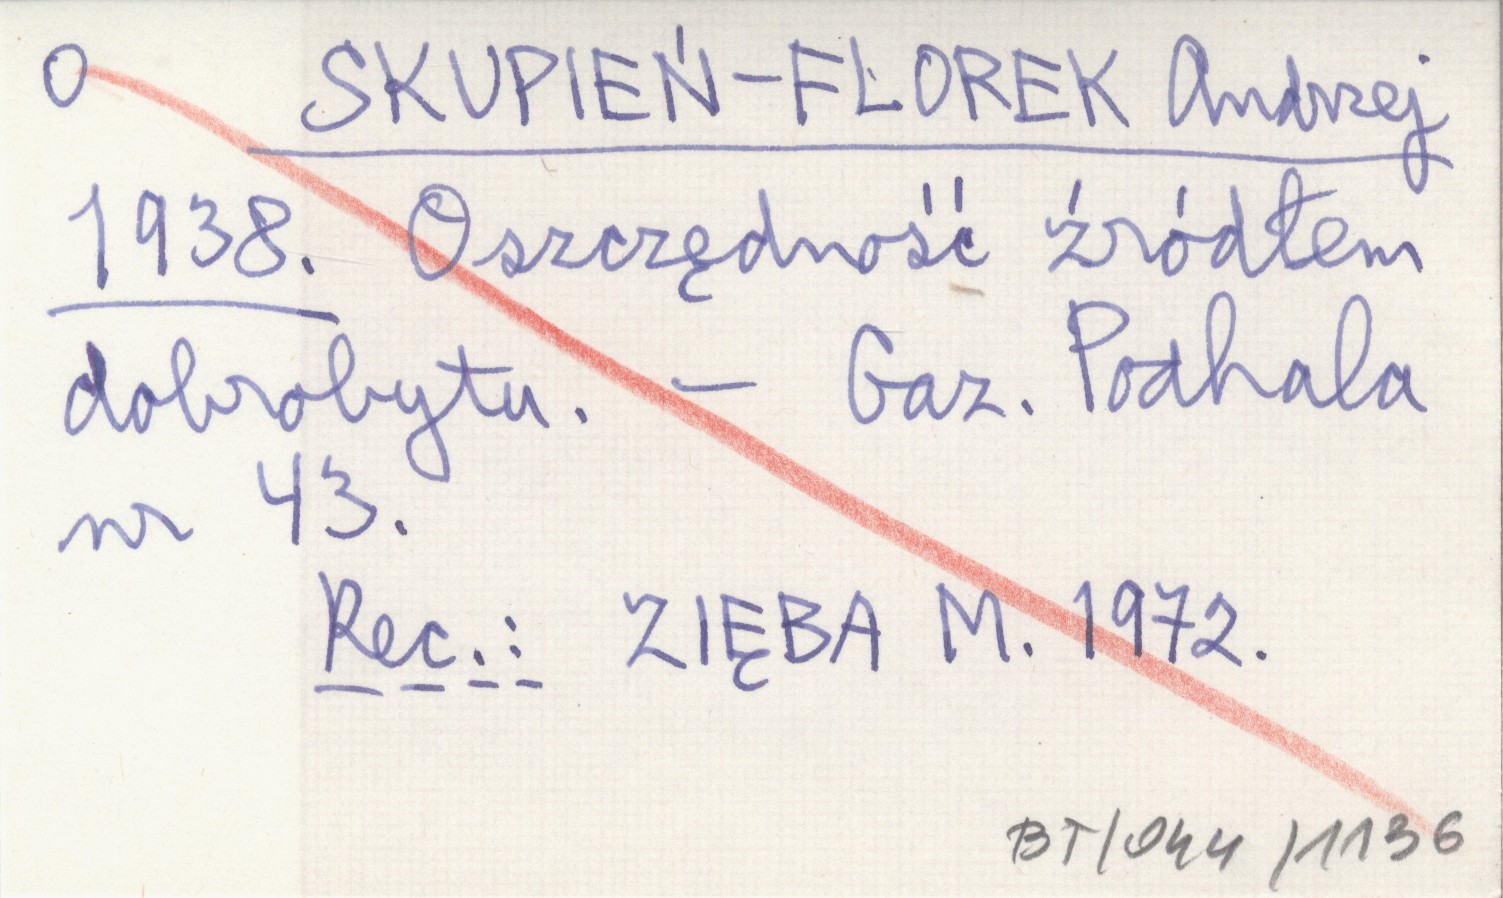 O SKUPIEŃ-FLOREK Andrzej
1938. Oszczędność źródłem
dobrobytu. - Gaz. Podhala
nr 43.
Rec.: ZIĘBA M. 1972.
BT/044/1136